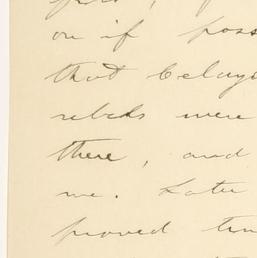 on if poss
that Celaya
rebels were
there, and
me. Later
proved